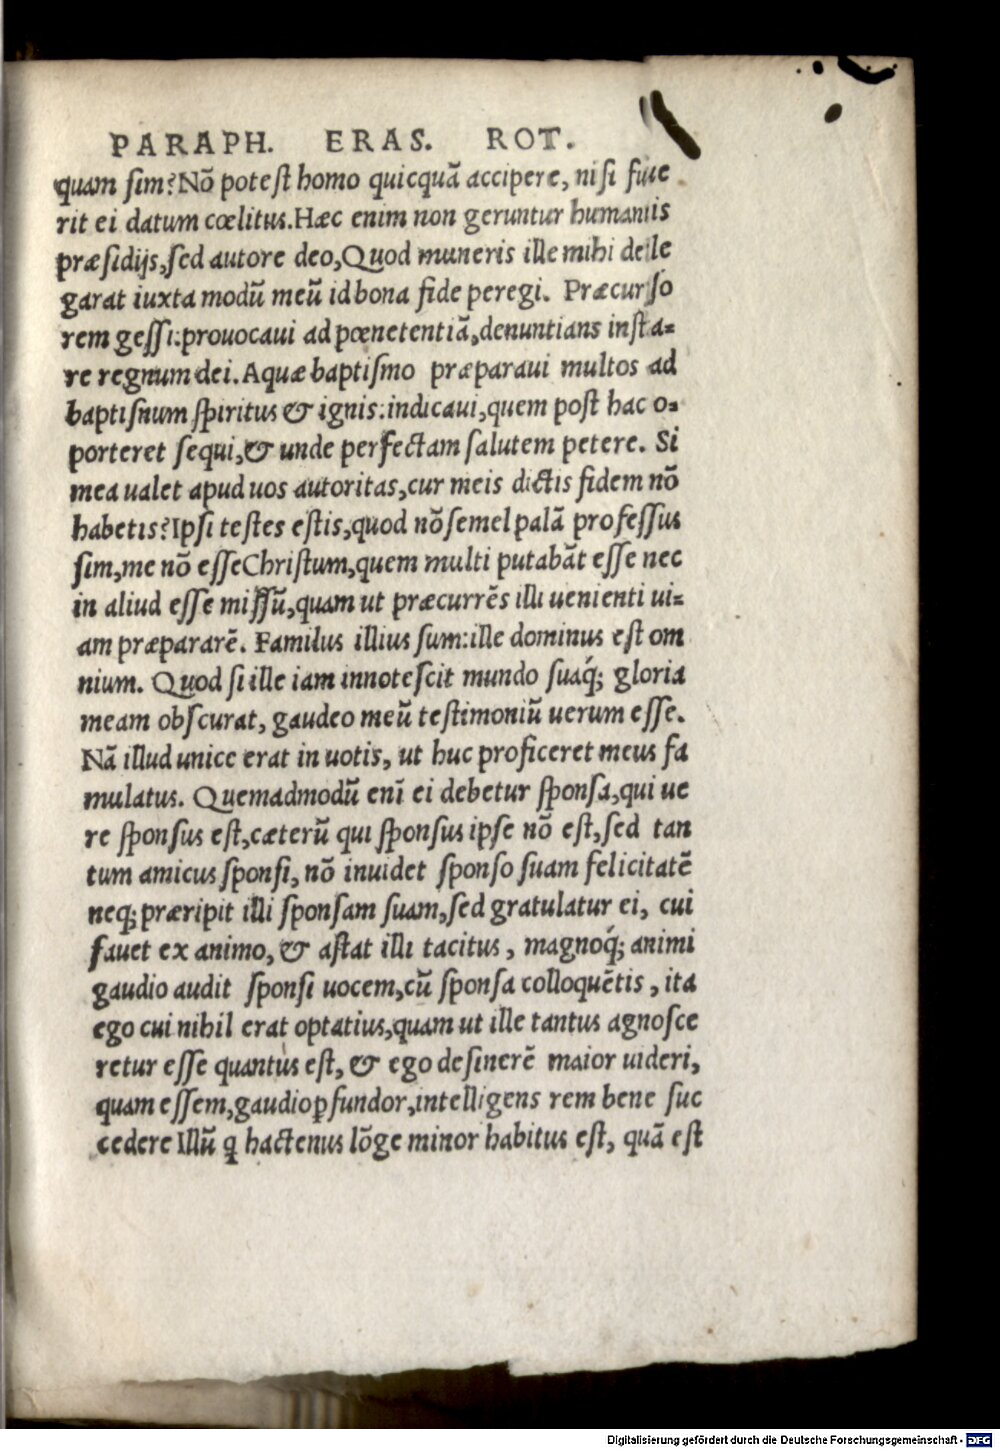 PARAPH. ERAS. ROT.
quam sim? Nō potest homo quicquā accipere, nisi fue
rit ei datum cœlitus. Hæc enim non geruntur humanis
præsidijs, sed autore deo, Quod muneris ille mihi dele
garat iuxta modū meū id bona fide peregi. Præcurso
rem gessi: prouocaui ad pœnetentiā, denuntians insta=
re regnum dei. Aquæ baptismo præparaui multos ad
baptismum spiritus & ignis: indicaui, quem post hac o=
porteret sequi, & unde perfectam salutem petere. Si
mea ualet apud uos autoritas, cur meis dictis fidem nō
habetis? Ipsi testes estis, quod nō semel palā professus
sim, me nō esse Christum, quem multi putabāt esse nec
in aliud esse missū, quam ut præcurrēs illi uenienti ui=
am præpararē. Famulus illius sum: ille dominus est om
nium. Quod si ille iam innotescit mundo suaq́; gloria
meam obscurat, gaudeo meū testimoniū uerum esse.
Nā illud unice erat in uotis, ut huc proficeret meus fa
mulatus. Quemadmodū enī ei debetur sponsa, qui ue
re sponsus est, cæterū qui sponsus ipse nō est, sed tan
tum amicus sponsi, nō inuidet sponso suam felicitatē
neq; præripit illi sponsam suam, sed gratulatur ei, cui
fauet ex animo, & astat illi tacitus, magnoq́; animi
gaudio audit sponsi uocem, cū sponsa colloquētis, ita
ego cui nihil erat optatius, quam ut ille tantus agnosce
retur esse quantus est, & ego desinerē maior uideri,
quam essem, gaudio ꝑfundor, intelligens rem bene suc
cedere Illū q hactenus lōge minor habitus est, quā est
Digitalisierung gefördert durch die Deutsche Forschungsgemeinschaft - DFG